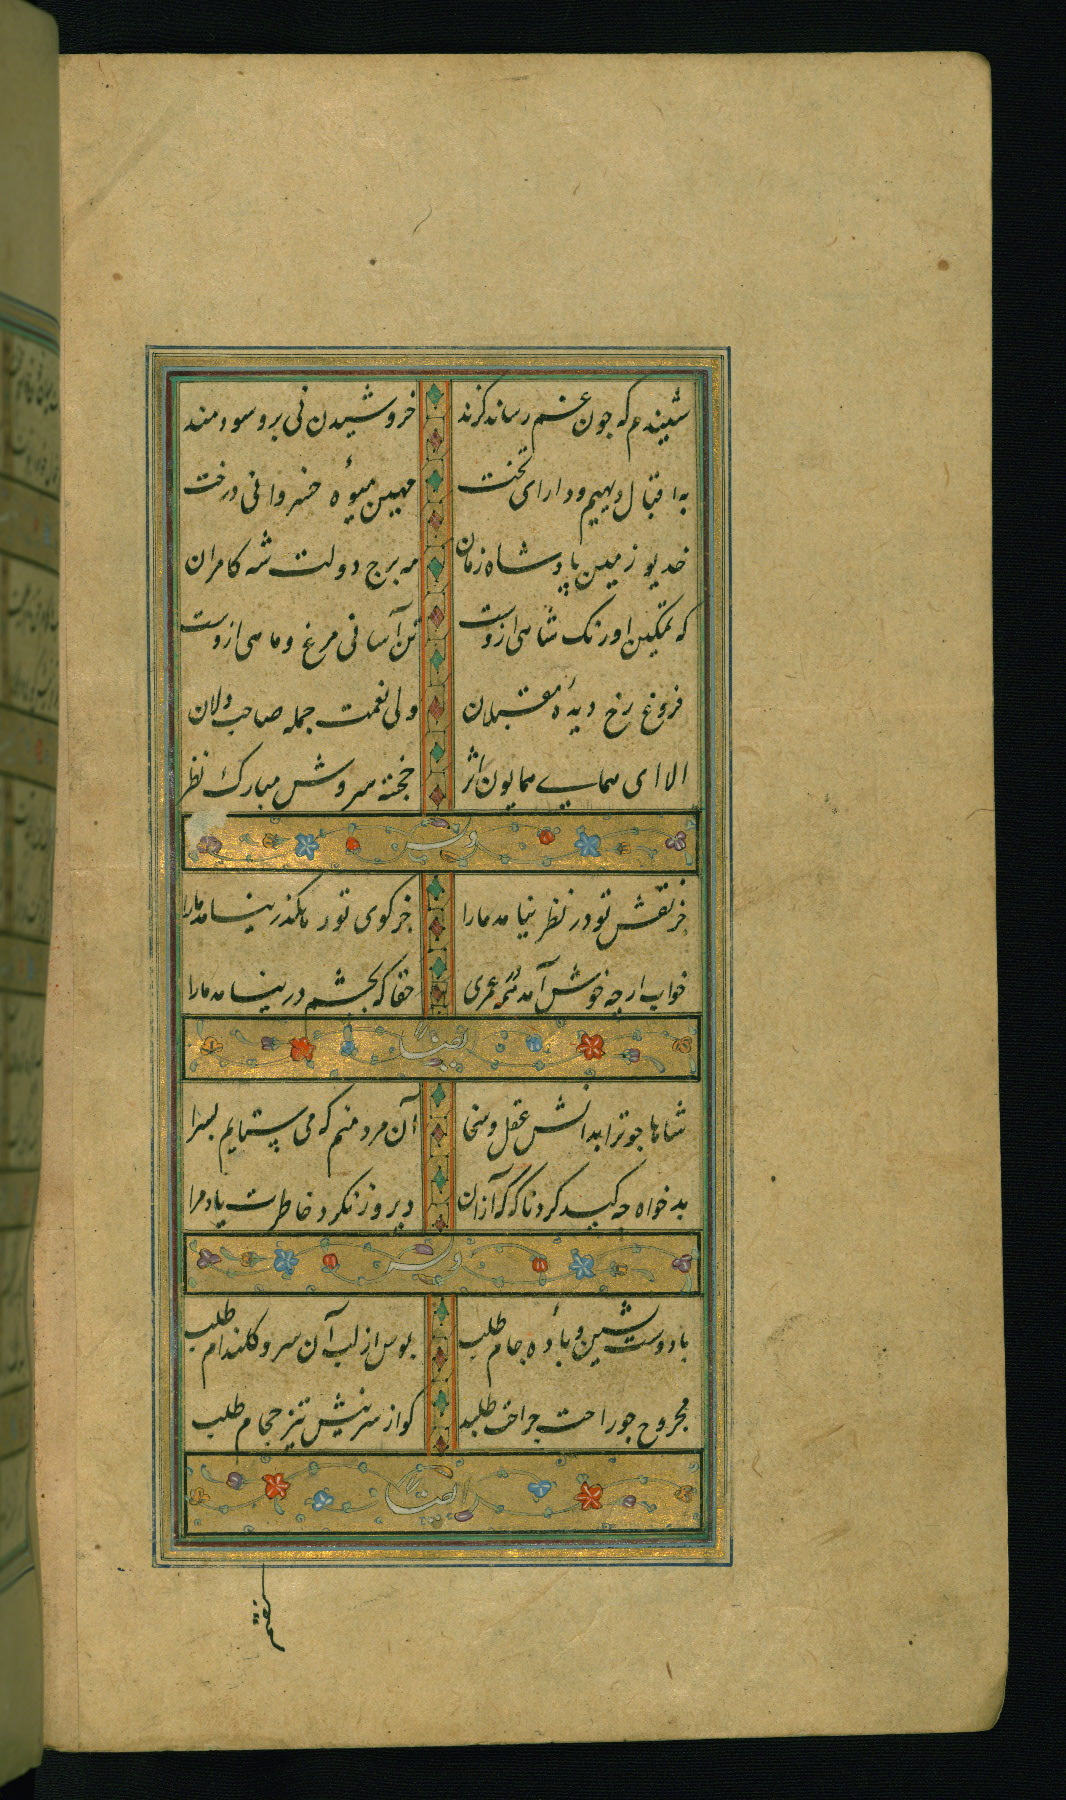 شنیدم که چون غم رساند گزند خروشیدن نی برو سودمند
به اقبال دیهیم و دارای تخت مهین میوهٔ خسروانی درخت
خدیو زمین پادشاه زمان مه برج دولت شه کامران
که تمکین اورنک شاهی ازوست تن آسانی مرغ و ماهی ازوست
فروغ رخ دیدهٔ مقبلان ولی نعمت جمله صاحب دلان
الا ای همای همایون اثر خجسته سروش مبارک نظر
وله
خر نقش تو در نظر نیامد ما را خر کوی تو رهکذر نیامد ما را
خواب ارچه خوش آمد همه عمری حقا که بچشم در نیامد ما را
ایضا
شاها چو ترا بدانش عقل و سخا آن مرد منم که می ستایم بسزا
بدخواه چه کید کرد ناکه که از آن دیروز نکرد خاطرت یاد مرا
وله
با دوست نشین و بادهٔ جام طلب بوس از لب آن سرو کلندام طلب
مجروح چو راحت جراحت طلبد کو از سر نیش تیز حجام طلب
ایضا